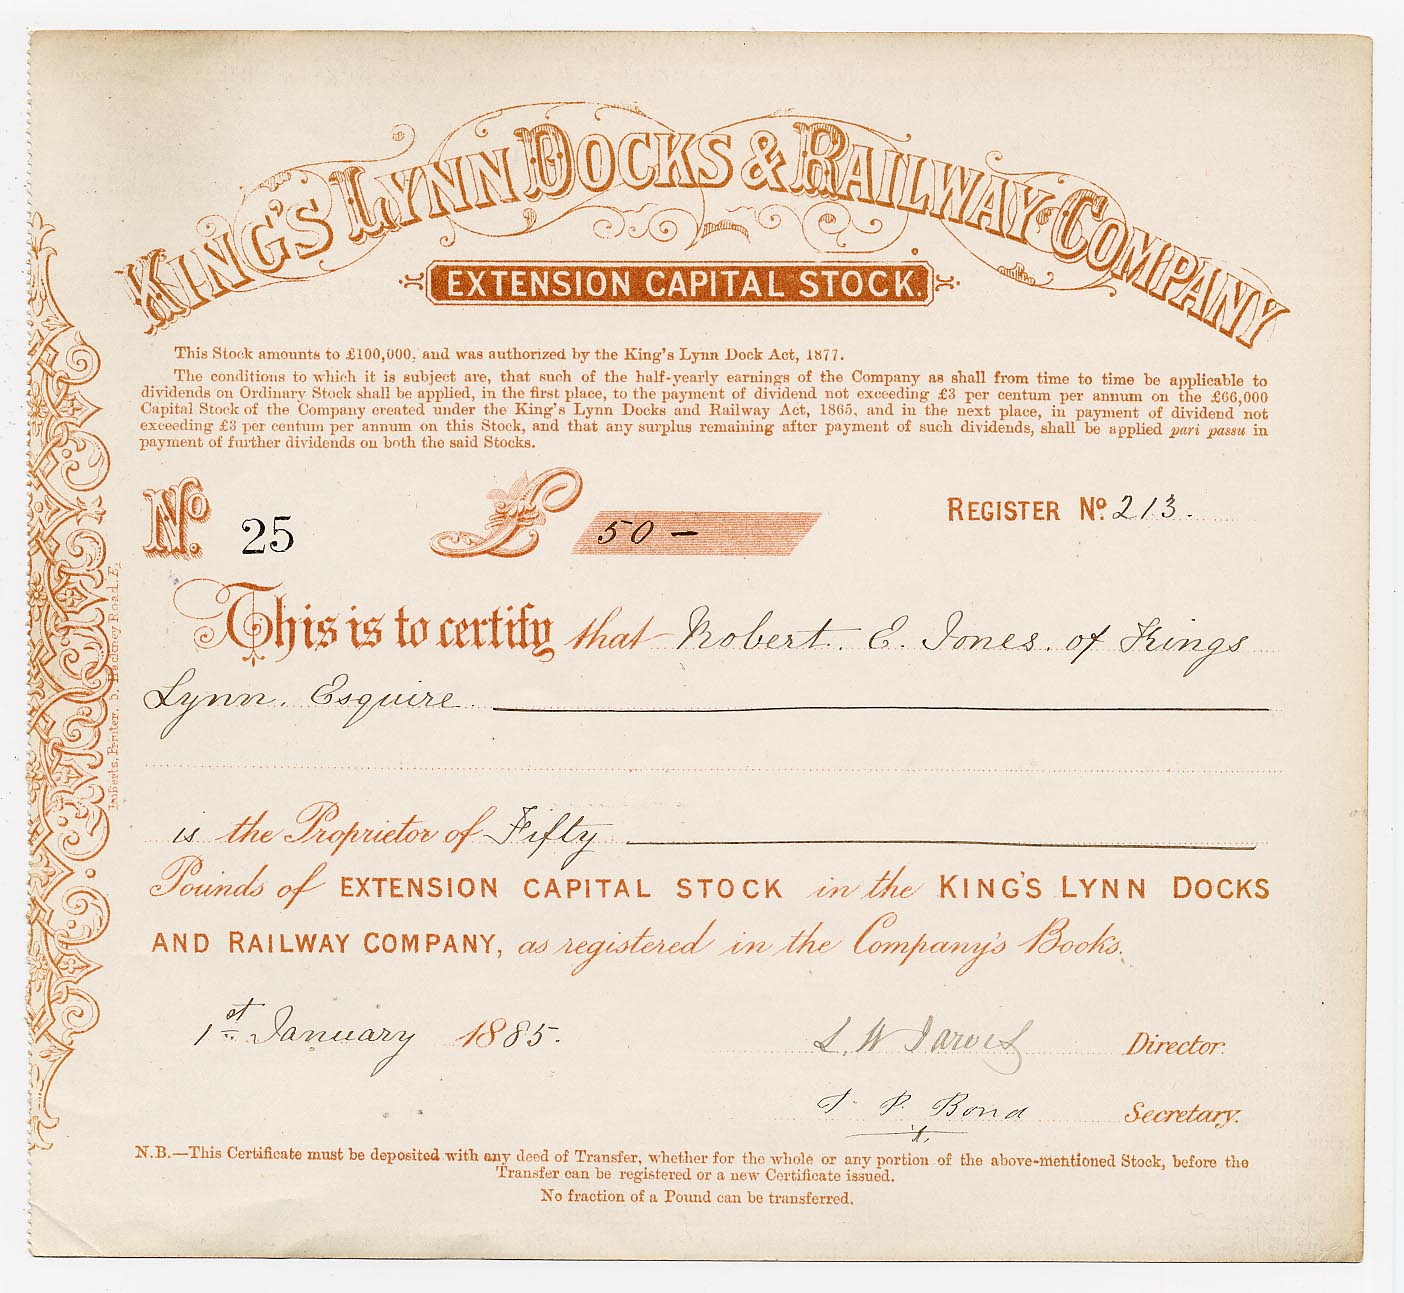 KING'S LYNN DOCKS & RAILWAY COMPANY
EXTENSION CAPITAL STOCK.
This Stock amounts to £100,000, and was authorized by the King's Lynn Dock Act, 1877.
The conditions to which it is subject are, that such of the half-yearly earnings of the Company as shall from time to time be applicable to
dividends on Ordinary Stock shall be applied, in the first place, to the payment of dividend not exceeding £3 per centum per annum on the £66,000
Capital Stock of the Company created under the King's Lynn Docks and Railway Act, 1865, and in the next place, in payment of dividend not
exceeding £3 per centum per annum on this Stock, and that any surplus remaining after payment of such dividends, shall be applied pari passu in
payment of further dividends on both the said Stocks.
No. 25 £ 50 — REGISTER No. 213.
This is to certify that Robert. E. Jones. of Kings
Lynn. Esquire
is the Proprietor of Fifty
Pounds of EXTENSION CAPITAL STOCK in the KING'S LYNN DOCKS
AND RAILWAY COMPANY, as registered in the Company's Books.
1st January 1885.
L. W Jarvis Director.
T. P. Bond Secretary.
N.B.—This Certificate must be deposited with any deed of Transfer, whether for the whole or any portion of the above-mentioned Stock, before the
Transfer can be registered or a new Certificate issued.
No fraction of a Pound can be transferred.
Roberts, Printer, 5, Hackney Road, E.